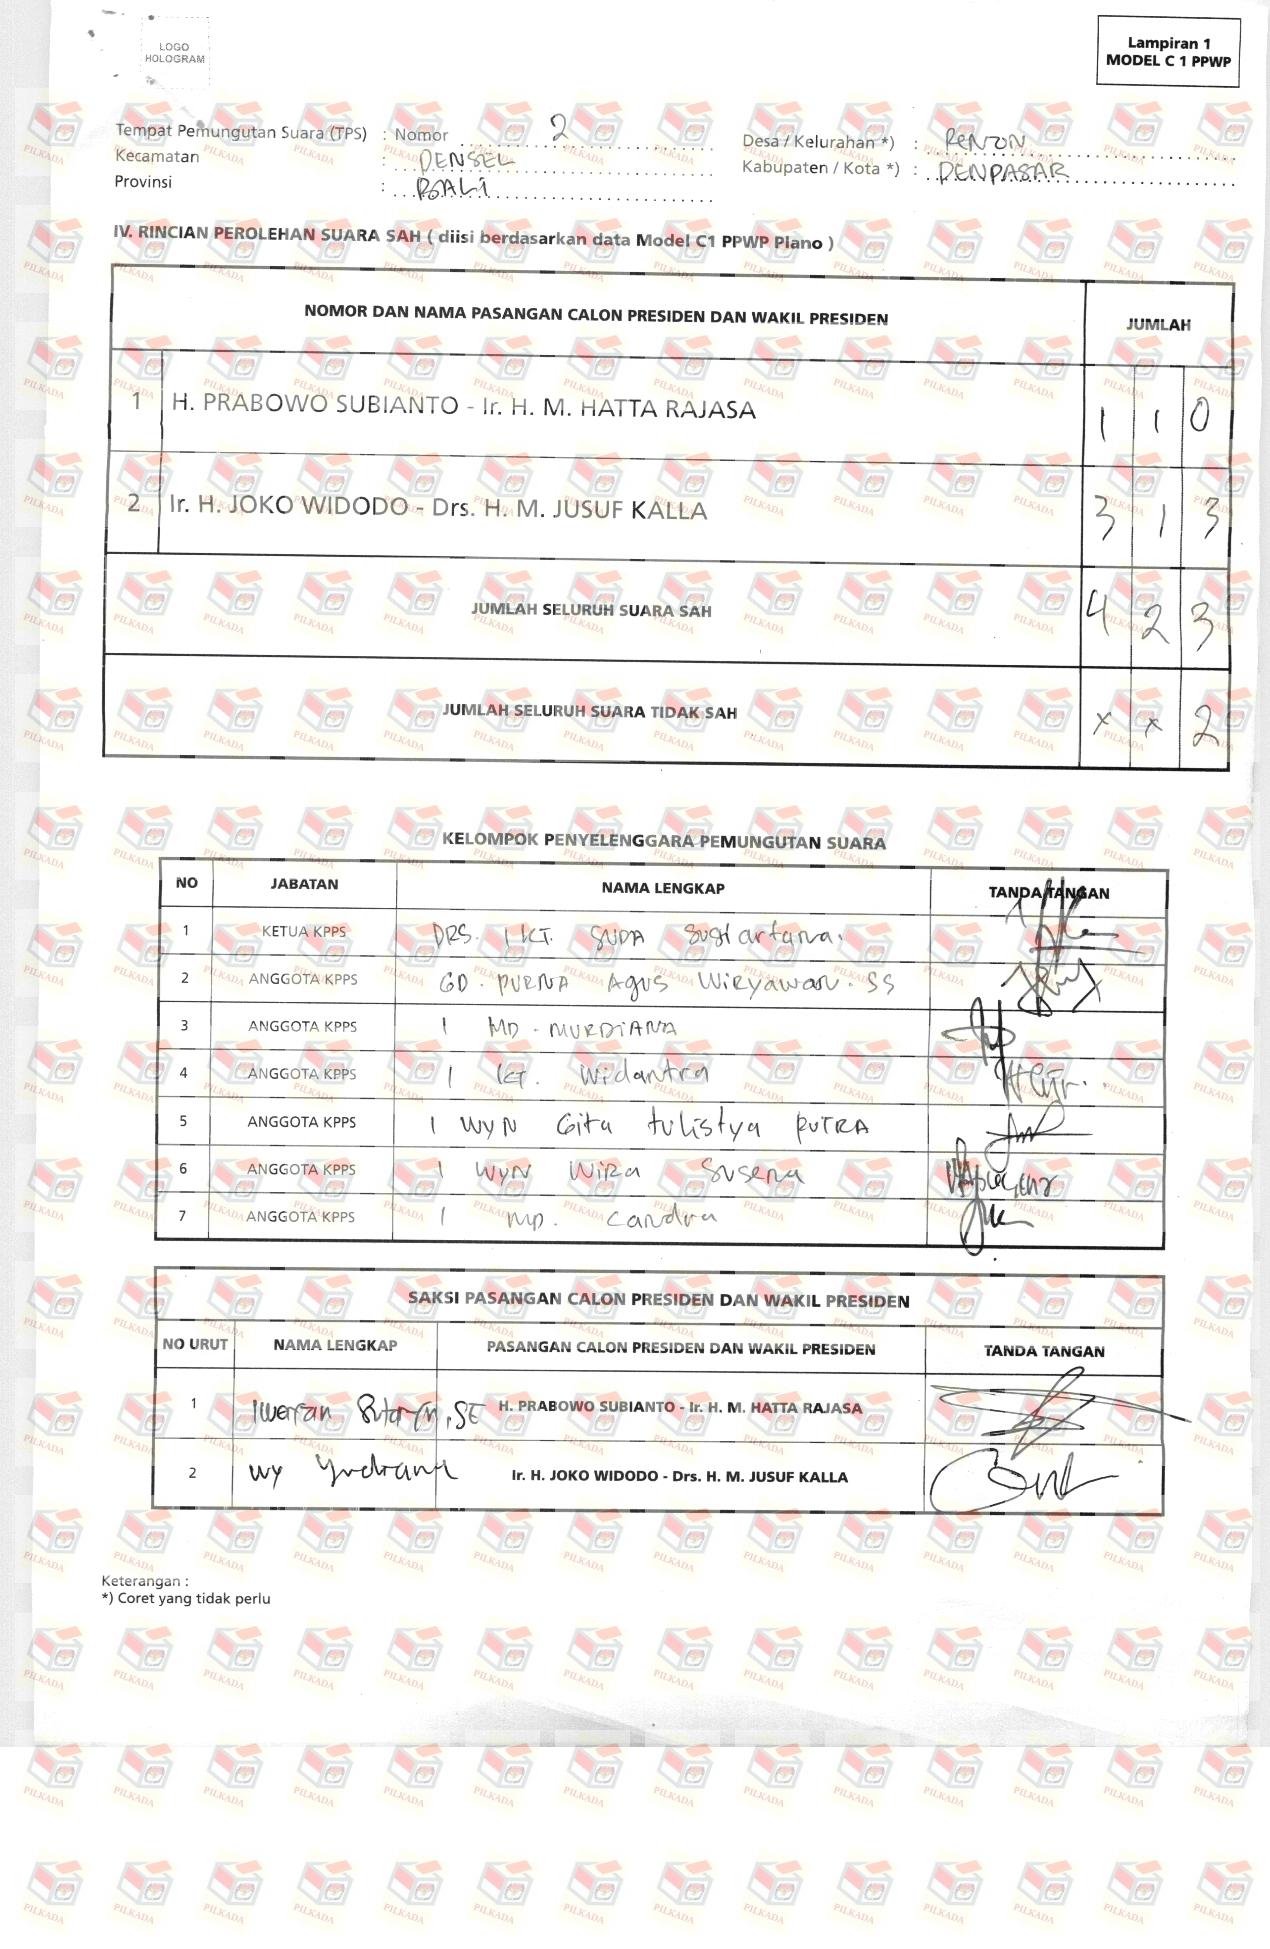 LOGO
HOLOGRAM
Lampiran 1
MODEL C 1 PPWP
Tempat Pemungutan Suara (TPS) : Nomor 2
Desa / Kelurahan *) : RENON
Kecamatan : DENSEL
Kabupaten / Kota *) : DENPASAR
Provinsi : BALI
IV. RINCIAN PEROLEHAN SUARA SAH ( diisi berdasarkan data Model C1 PPWP Plano )
NOMOR DAN NAMA PASANGAN CALON PRESIDEN DAN WAKIL PRESIDEN JUMLAH
1 H. PRABOWO SUBIANTO - Ir. H. M. HATTA RAJASA 1 1 0
2 Ir. H. JOKO WIDODO - Drs. H. M. JUSUF KALLA 3 1 3
JUMLAH SELURUH SUARA SAH 4 2 3
JUMLAH SELURUH SUARA TIDAK SAH x x 2
KELOMPOK PENYELENGGARA PEMUNGUTAN SUARA
NO JABATAN NAMA LENGKAP TANDA TANGAN
1 KETUA KPPS DRS. I KT. SUDA Sugiartana.
2 ANGGOTA KPPS GD. PURNA Agus Wiryawan. SS
3 ANGGOTA KPPS I MD. MURDIANA
4 ANGGOTA KPPS I KT. Widantra
5 ANGGOTA KPPS I WYN Gita tulistya PUTRA
6 ANGGOTA KPPS I WYN WIRa Susena
7 ANGGOTA KPPS I MD. Candra
SAKSI PASANGAN CALON PRESIDEN DAN WAKIL PRESIDEN
NO URUT NAMA LENGKAP PASANGAN CALON PRESIDEN DAN WAKIL PRESIDEN TANDA TANGAN
1 , SE H. PRABOWO SUBIANTO - Ir. H. M. HATTA RAJASA
2 Wy Ir. H. JOKO WIDODO - Drs. H. M. JUSUF KALLA
Keterangan :
*) Coret yang tidak perlu
PILKADA